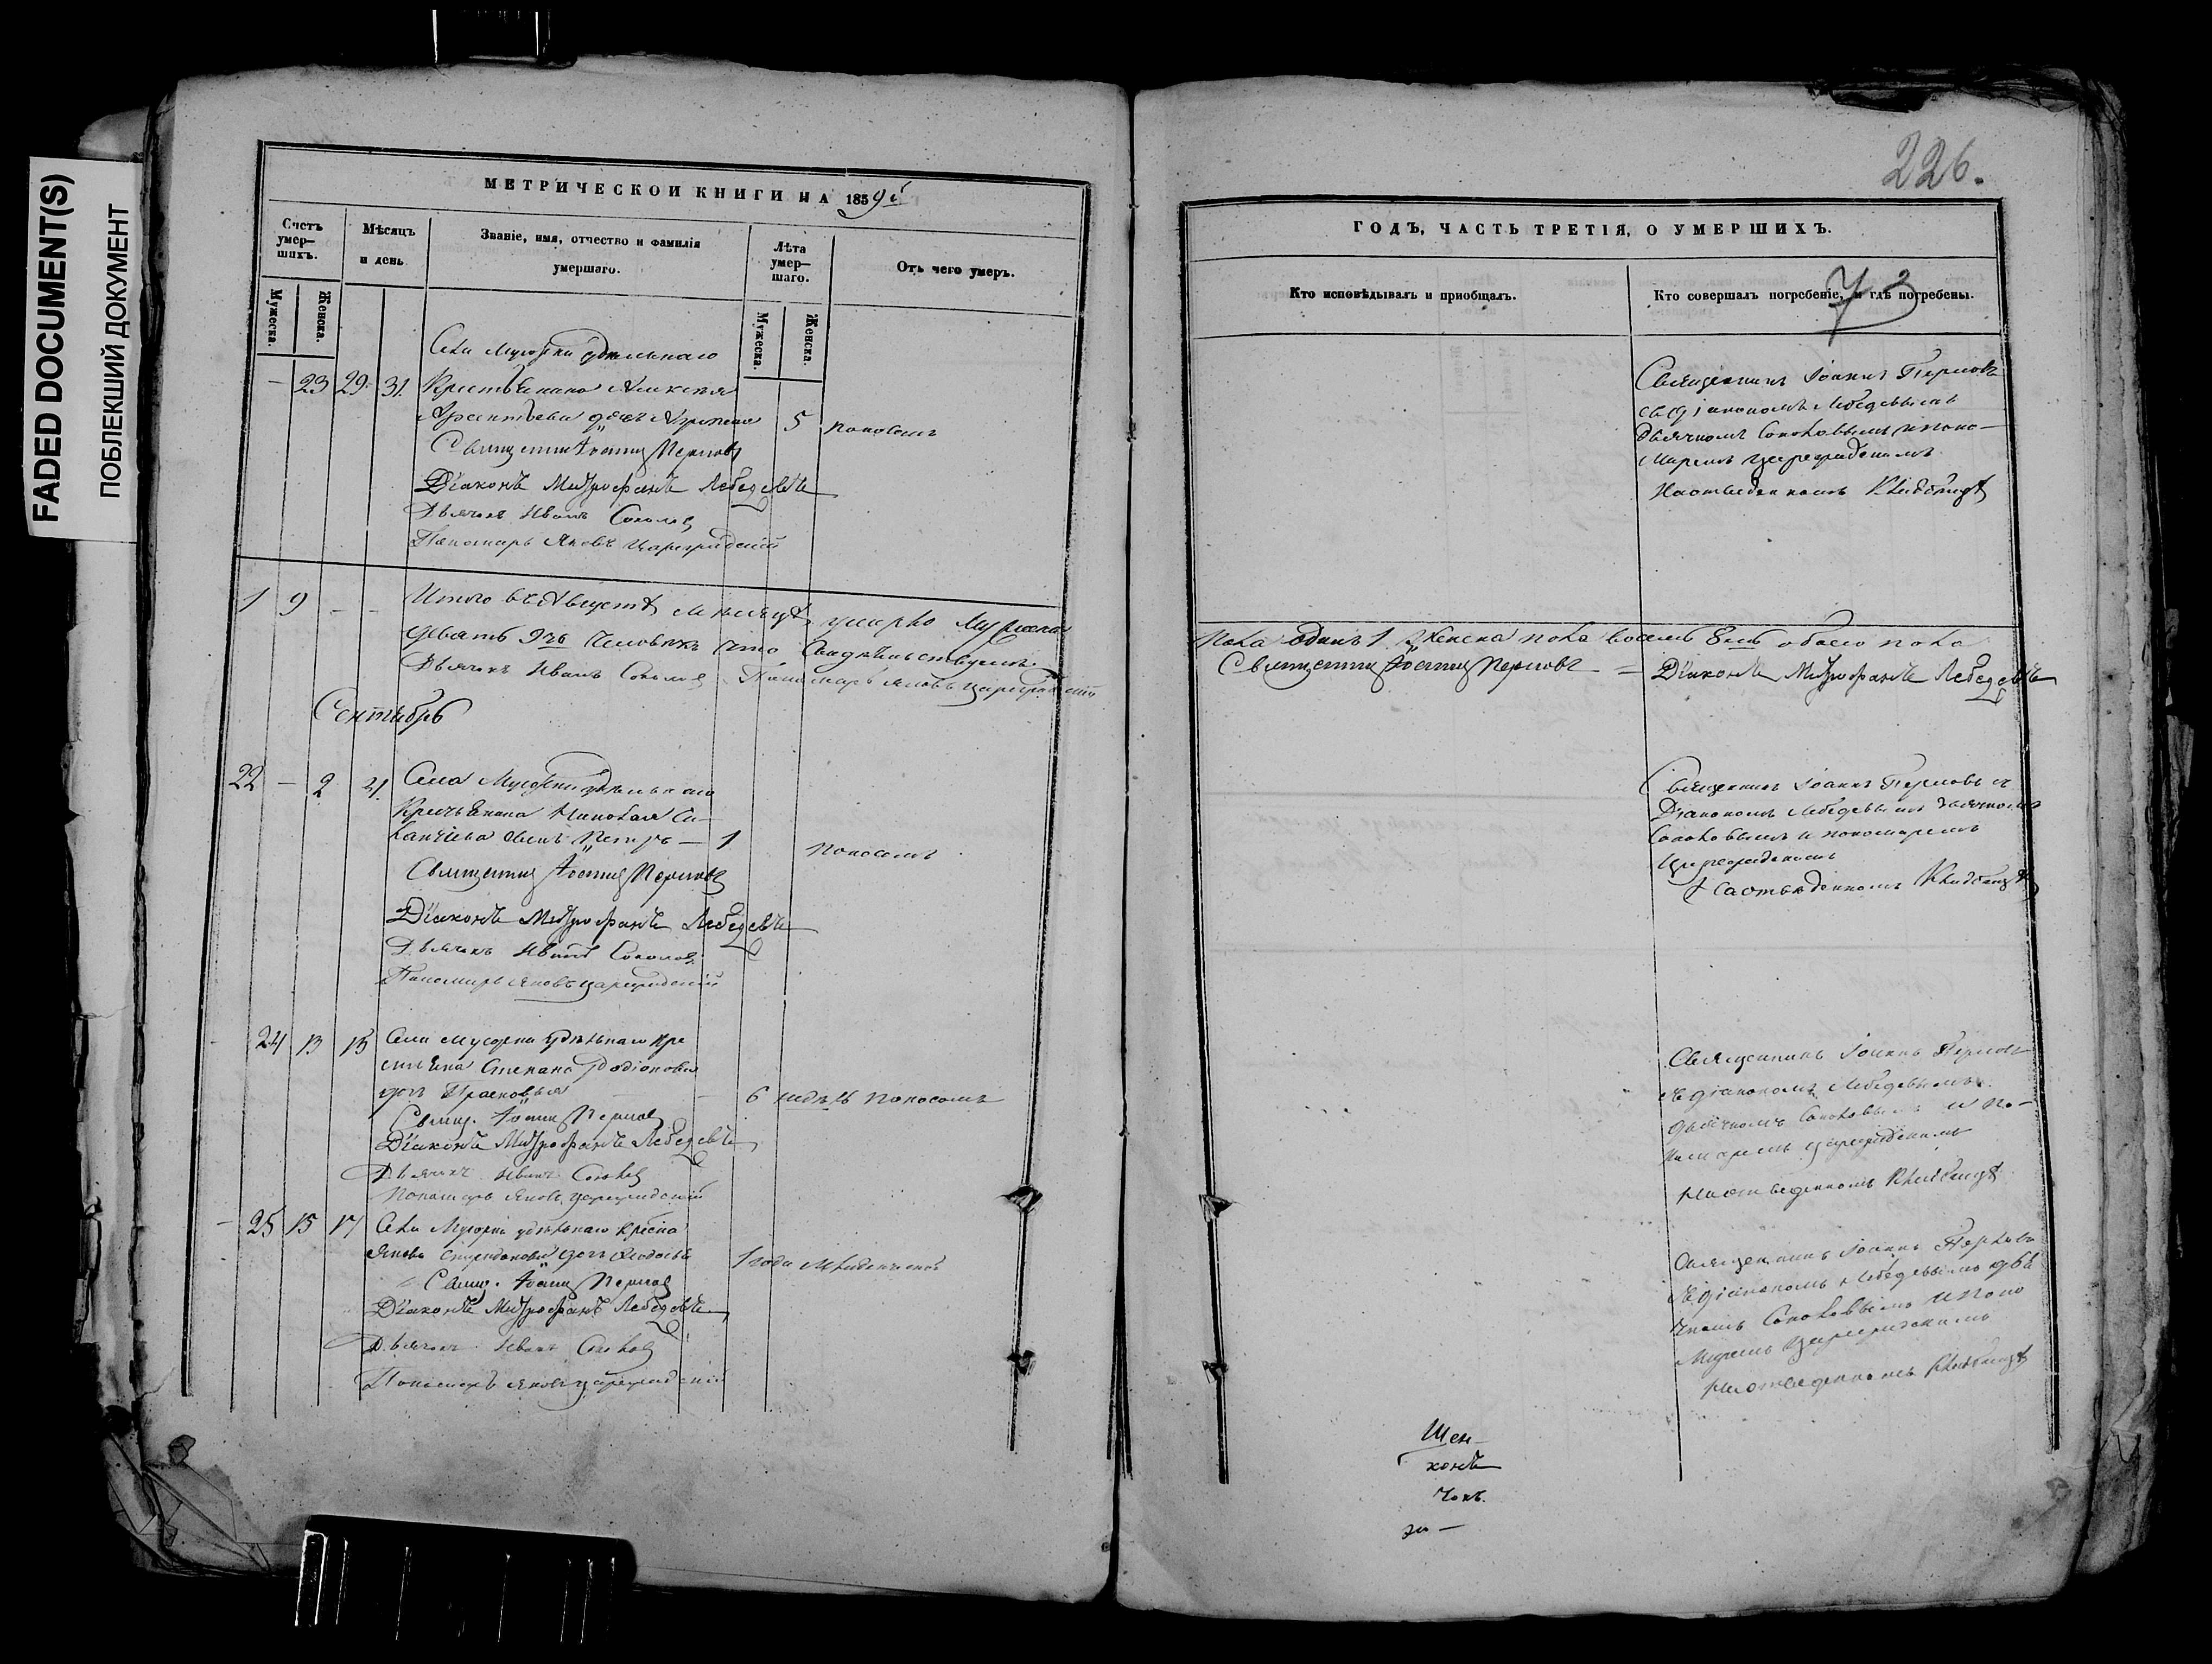 FADED DOCUMENT(S)
ПОБЛЕКШИЙ ДОКУМЕНТ
МЕТРИЧЕСКОЙ КНИГИ НА 1859й
Счетъ умер-
шихъ.
Мужеска.
Женска.
Мѣсяцъ
и день
Званіе, имя, отчество и фамилія
умершаго.
Лѣта
умер-
шаго.
Мужеска.
Женска.
Отъ чего умеръ.
— 23 29 31.
Села Мусорки удѣльнаго
Крестьянина Алексѣя
дочь
5 поносомъ
Священникъ Іоаннъ Перловъ
Діаконъ Митрофанъ Лебедевъ
Дьячокъ Иванъ Соколов
Пономарь Яковъ Цареградскій
1 9 - -
Итого въ Августѣ мѣсяцѣ умерло Мужеска
девять 9ть Человѣкъ что Свидѣтельствуемъ
Дьячокъ Иванъ Соколов Пономарь Яковъ Цареградскій
Сентябрь
22 — 2 4.
Села Мусорки удѣльнаго
Крестьянина Николая
сынъ Петръ — 1 поносомъ
Священникъ Іоаннъ Перловъ
Діаконъ Митрофанъ Лебедевъ
Дьячокъ Иванъ Соколов
Пономарь Яковъ Цареградскій
24 13 15
Села Мусорки удѣльнаго кре
стьянина Степана Родіонова
дочь Прасковья — 6 недѣль поносомъ
Свящ. Іоаннъ Перлов
Діаконъ Митрофанъ Лебедевъ
Дьячокъ Иванъ Соколов
Пономарь Яковъ Цареградскій
— 25 15 17
Села Мусорки удѣльнаго
Якова дочь 1 года Младенческой
Свящ. Іоаннъ Перлов
Діаконъ Митрофанъ Лебедевъ
Дьячокъ Иванъ Соколов
Пономарь Яковъ Цареградскій
226.
ГОДЪ, ЧАСТЬ ТРЕТІЯ, О УМЕРШИХЪ.
Кто исповѣдывалъ и пріобщалъ.
Кто совершалъ погребеніе, и гдѣ погребены.
Священникъ Іоаннъ Перловъ
съ діакономъ Лебедевымъ
дьячкомъ Соколовымъ и поно-
маремъ Цареградскимъ
На отведенномъ кладбищѣ
пола одинъ 1. Женска пола восемь 8мь обоего пола
Священникъ Іоаннъ Перловъ = Діаконъ Митрофанъ Лебедевъ
Священникъ Іоаннъ Перловъ съ
Діакономъ Лебедевымъ дьячкомъ
Соколовымъ и пономаремъ
Цареградскимъ
На отведенномъ Кладбищѣ
Священникъ Іоаннъ Перловъ
съ діакономъ Лебедевымъ
дьячкомъ Соколовымъ и по-
номаремъ Цареградскимъ
на отведенномъ Кладбищѣ
Священникъ Іоаннъ Перловъ
съ діакономъ Лебедевымъ дья
чкомъ Соколовымъ и поно
маремъ Цареградскимъ
на отведенномъ Кладбищѣ